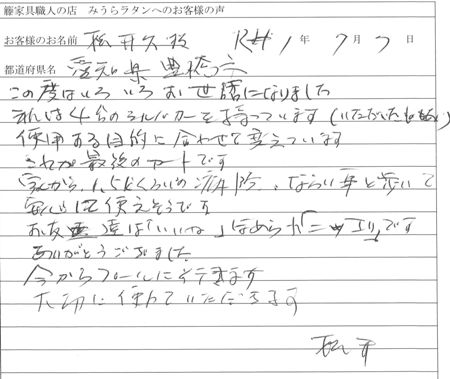 籐家具職人の店 みうらラタンへのお客様の声
お客様のお名前 松井久 R元年 7月 日
都道府県名 愛知県豊橋市
この度はいろいろお世話になりました
私は4台のシルバーカーを持っています(いただいたもの
使用ある目的に合わせて変えています
これが最後のカートです
家から1.5kくらいの 歩いて
安心に使えそうです
お友達は「いいね」ほめられニッコリです
ありがとうございました
今からプールに行きます
大切に使わていただきます
松井